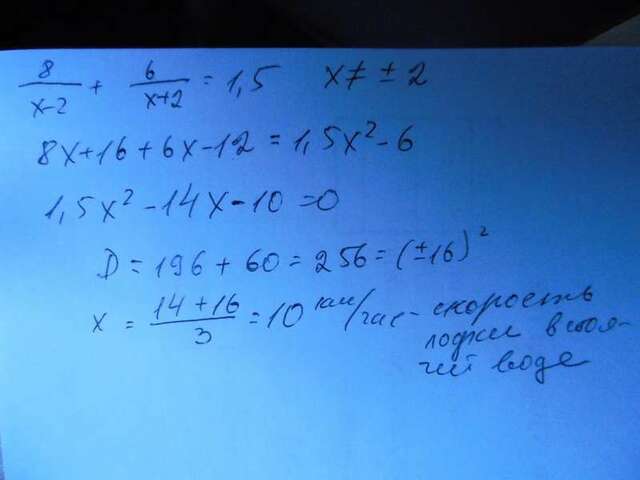 8/(x-2) + 6/(x+2) = 1,5 x ≠ ± 2
8x+16+6x-12 = 1,5x²-6
1,5x²-14x-10=0
D = 196+60=256=(±16)²
x = (14+16)/3 = 10 км/час - скорость
лодки в стоя-
чей воде